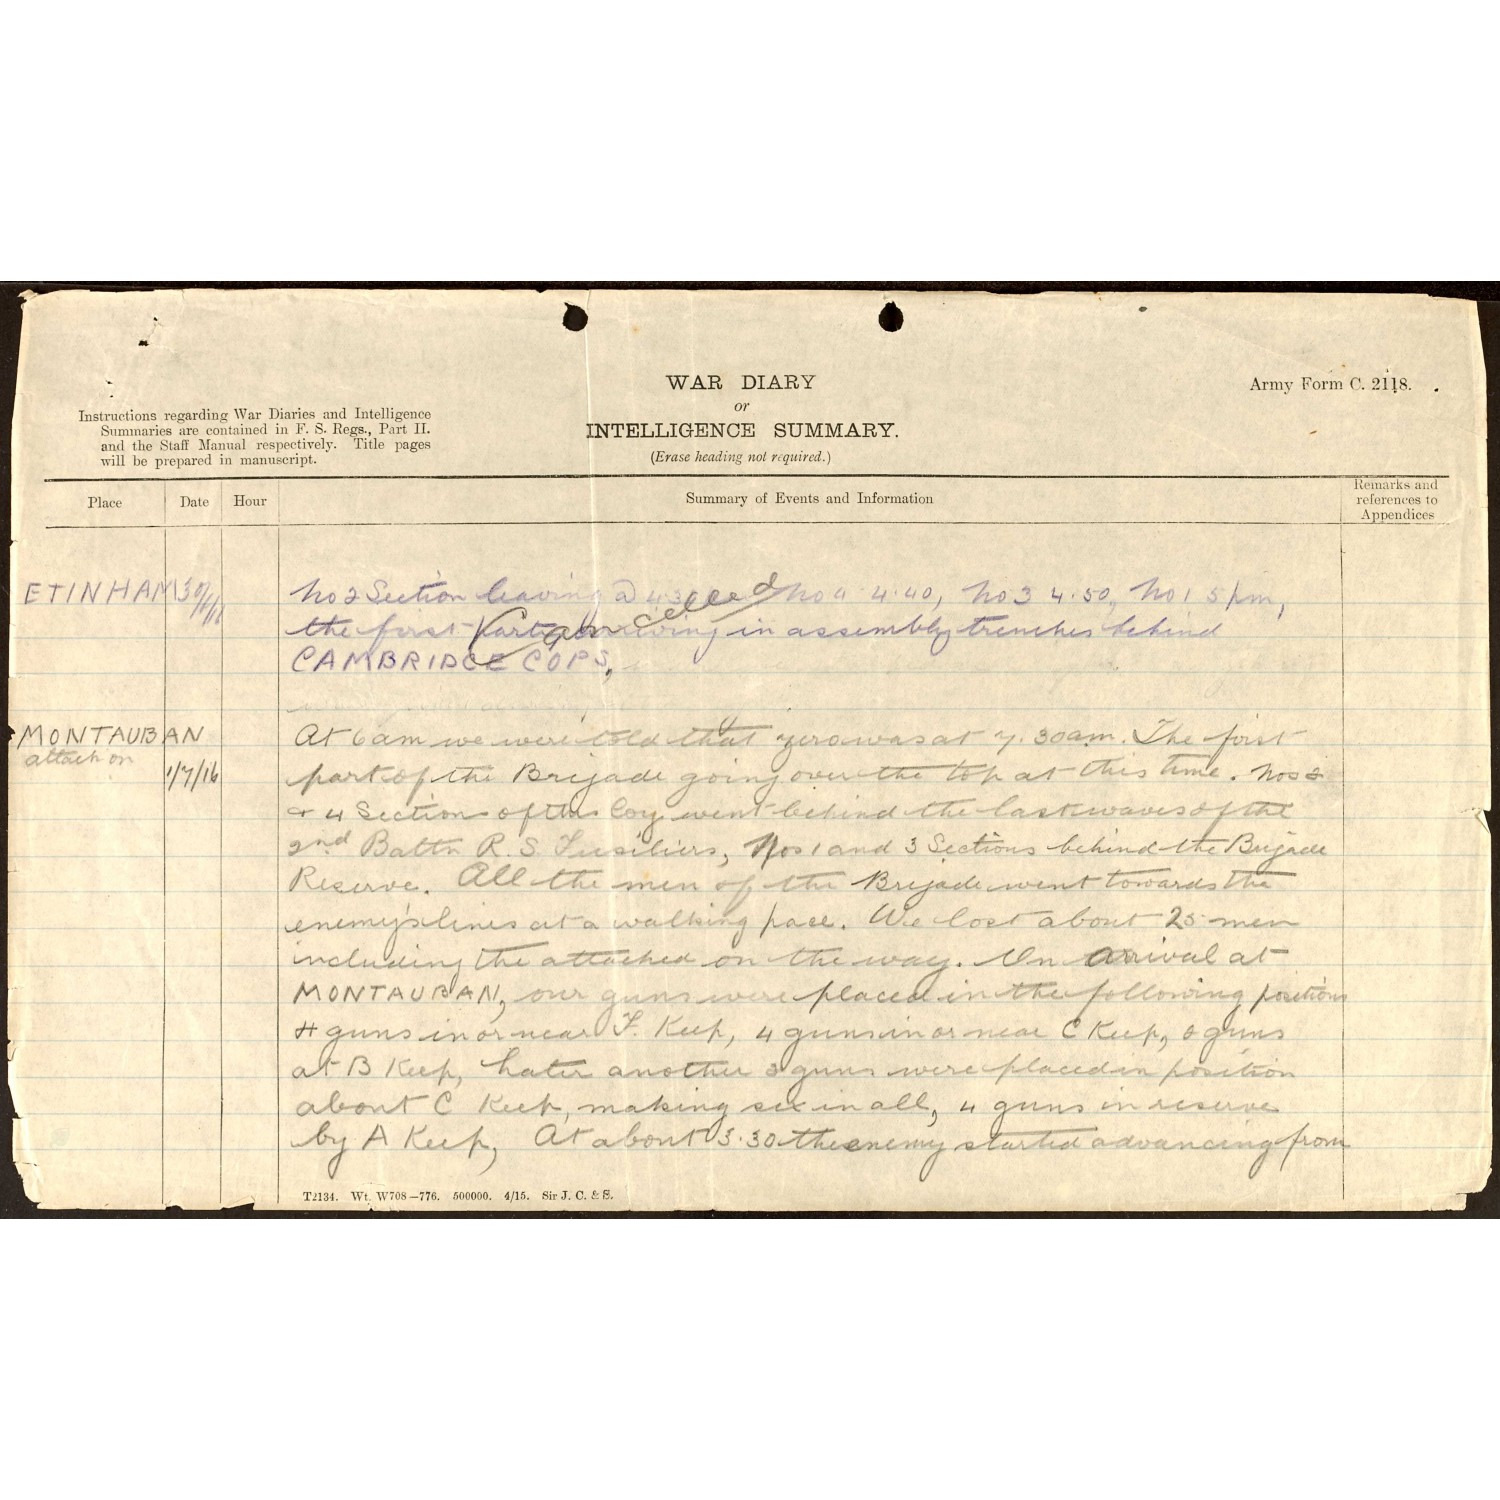 WAR DIARY
or
INTELLIGENCE SUMMARY.
(Erase heading not required.)
Army Form C. 2118.
Instructions regarding War Diaries and Intelligence
Summaries are contained in F. S. Regs., Part II.
and the Staff Manual respectively. Title pages
will be prepared in manuscript.
Place Date Hour Summary of Events and Information Remarks and references to Appendices
ETINHAM 30/6/16 No 2 Section leaving @ 4.30 No 4 4.40, No 3 4.50, No 1 5 pm,
Cancelled
the first party arriving in assembly trenches behind
CAMBRIDGE COPS,
MONTAUBAN At 6 am we were told that zero was at 7.30 am. The first
attack on
1/7/16 part of the Brigade going over the top at this time. Nos 2
& 4 Sections of this Coy went behind the last waves of the
2nd Battn R. S. Fusiliers, Nos 1 and 3 Sections behind the Brigade
Reserve. All the men of the Brigade went towards the
enemy's lines at a walking pace. We lost about 25 men
including the attached on the way. On arrival at
MONTAUBAN, our guns were placed in the following positions
4 guns in or near F. Keep, 4 guns in or near C Keep, 2 guns
at B Keep, Later another 2 guns were placed in position
about C Keep, making six in all, 4 guns in reserve
by A Keep, At about 3.30 the enemy started advancing from
T2134. Wt. W708—776. 500000. 4/15. Sir J. C. & S.